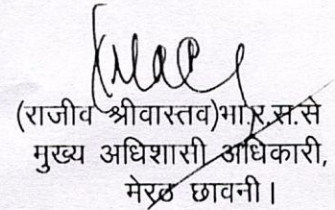 (राजीव श्रीवास्तव)भा.र.स.से
मुख्य अधिशासी अधिकारी,
मेरठ छावनी।